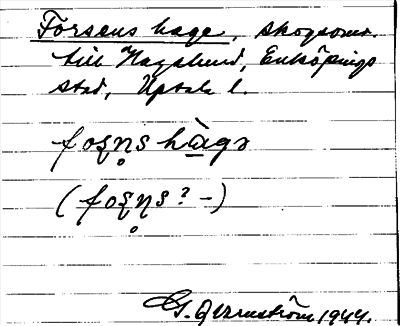 Forsens hage, skogsomr.
till Haglund, Enköpings
stad, Upsala l.
foʂn̥s hàgə
(foʂn̥s? –)
1944.